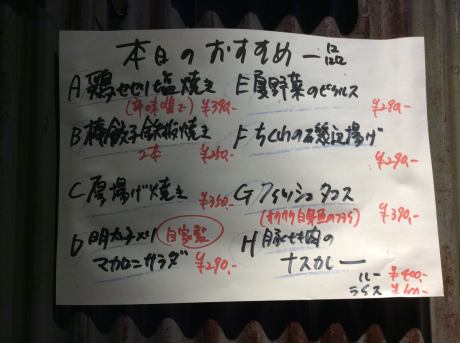 本日のおすすめ一品
A 鶏せせり塩焼き
(辛味噌で) ¥390,-
B 棒餃子鉄板焼き
2本 ¥250,-
C 厚揚げ焼き ¥350,-
D 明太子入り 自家製
マカロニサラダ ¥290,-
E 夏野菜のピクルス
¥290,-
F ちくわの磯辺揚げ
¥290,-
G フィッシュタコス
(サクサク白身魚のフライ) ¥390,-
H 豚もも肉の
ナスカレー
ルー ¥400,-
ライス